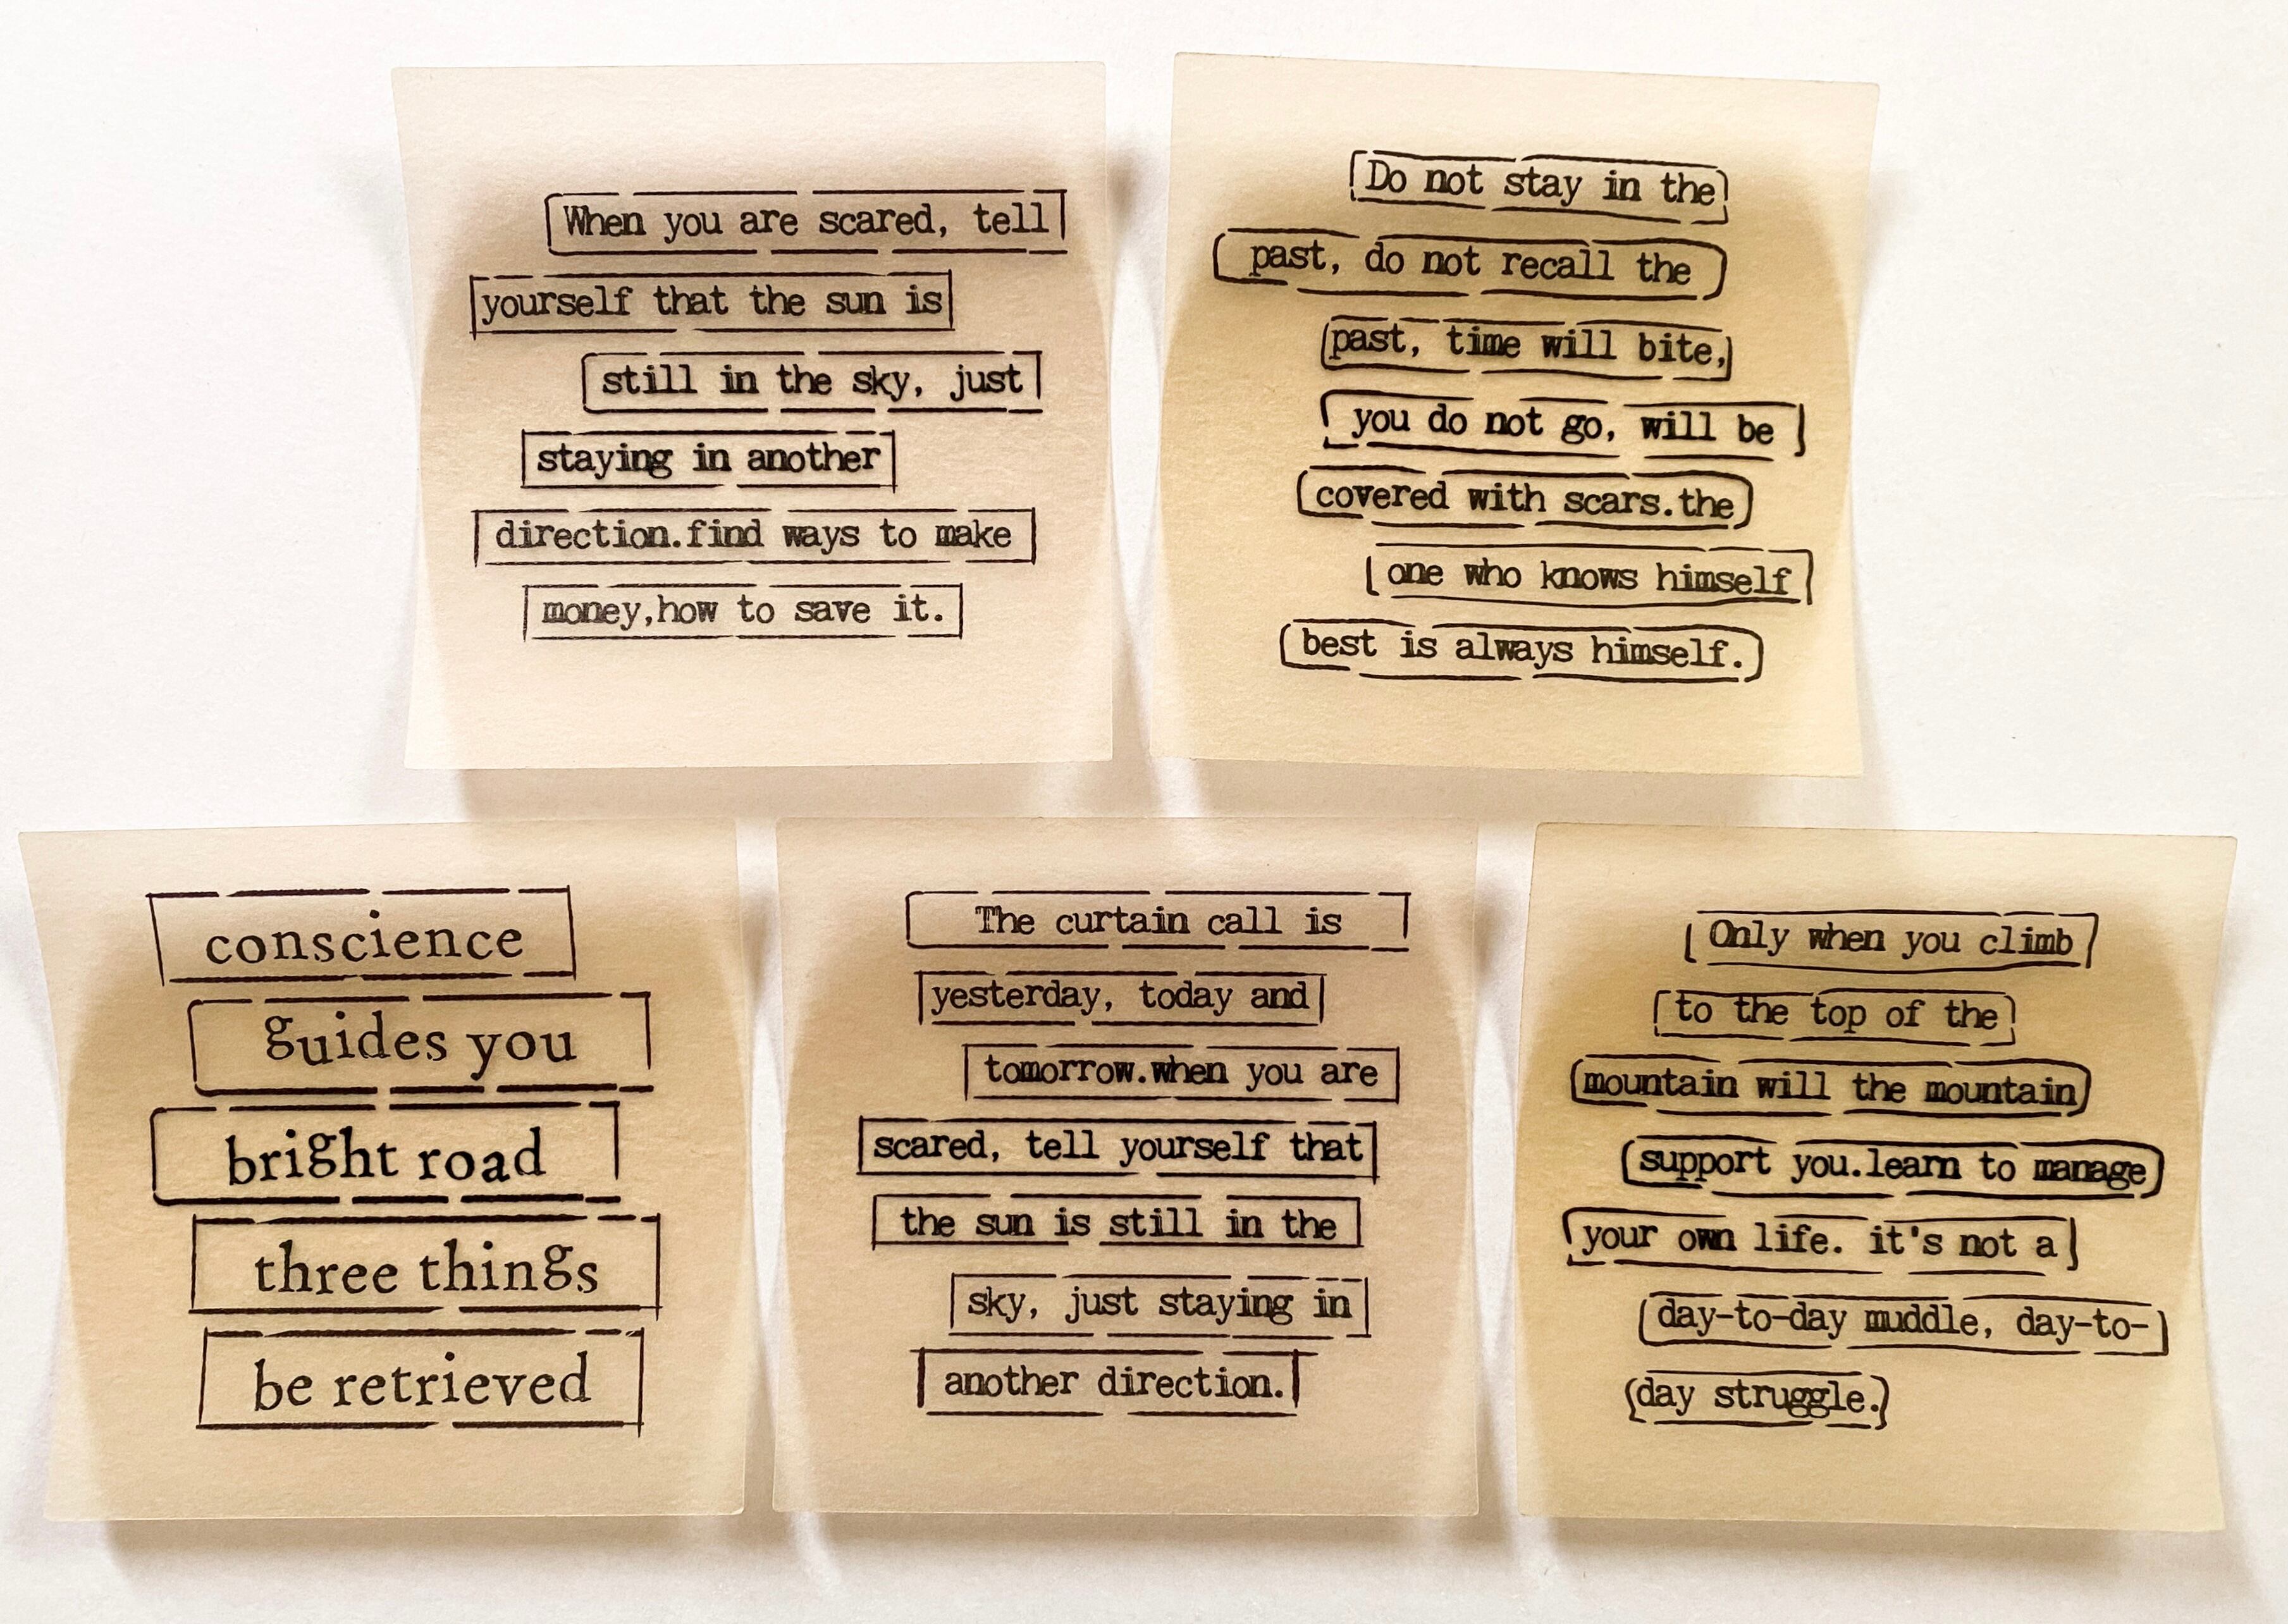 When you are scared, tell
yourself that the sun is
still in the sky, just
staying in another
direction.find ways to make
money,how to save it.
Do not stay in the
past, do not recall the
past, time will bite,
you do not go, will be
covered with scars.the
one who knows himself
best is always himself.
conscience
guides you
bright road
three things
be retrieved
The curtain call is
yesterday, today and
tomorrow.when you are
scared, tell yourself that
the sun is still in the
sky, just staying in
another direction.
Only when you climb
to the top of the
mountain will the mountain
support you.learn to manage
your own life. it's not a
day-to-day muddle, day-to-
day struggle.